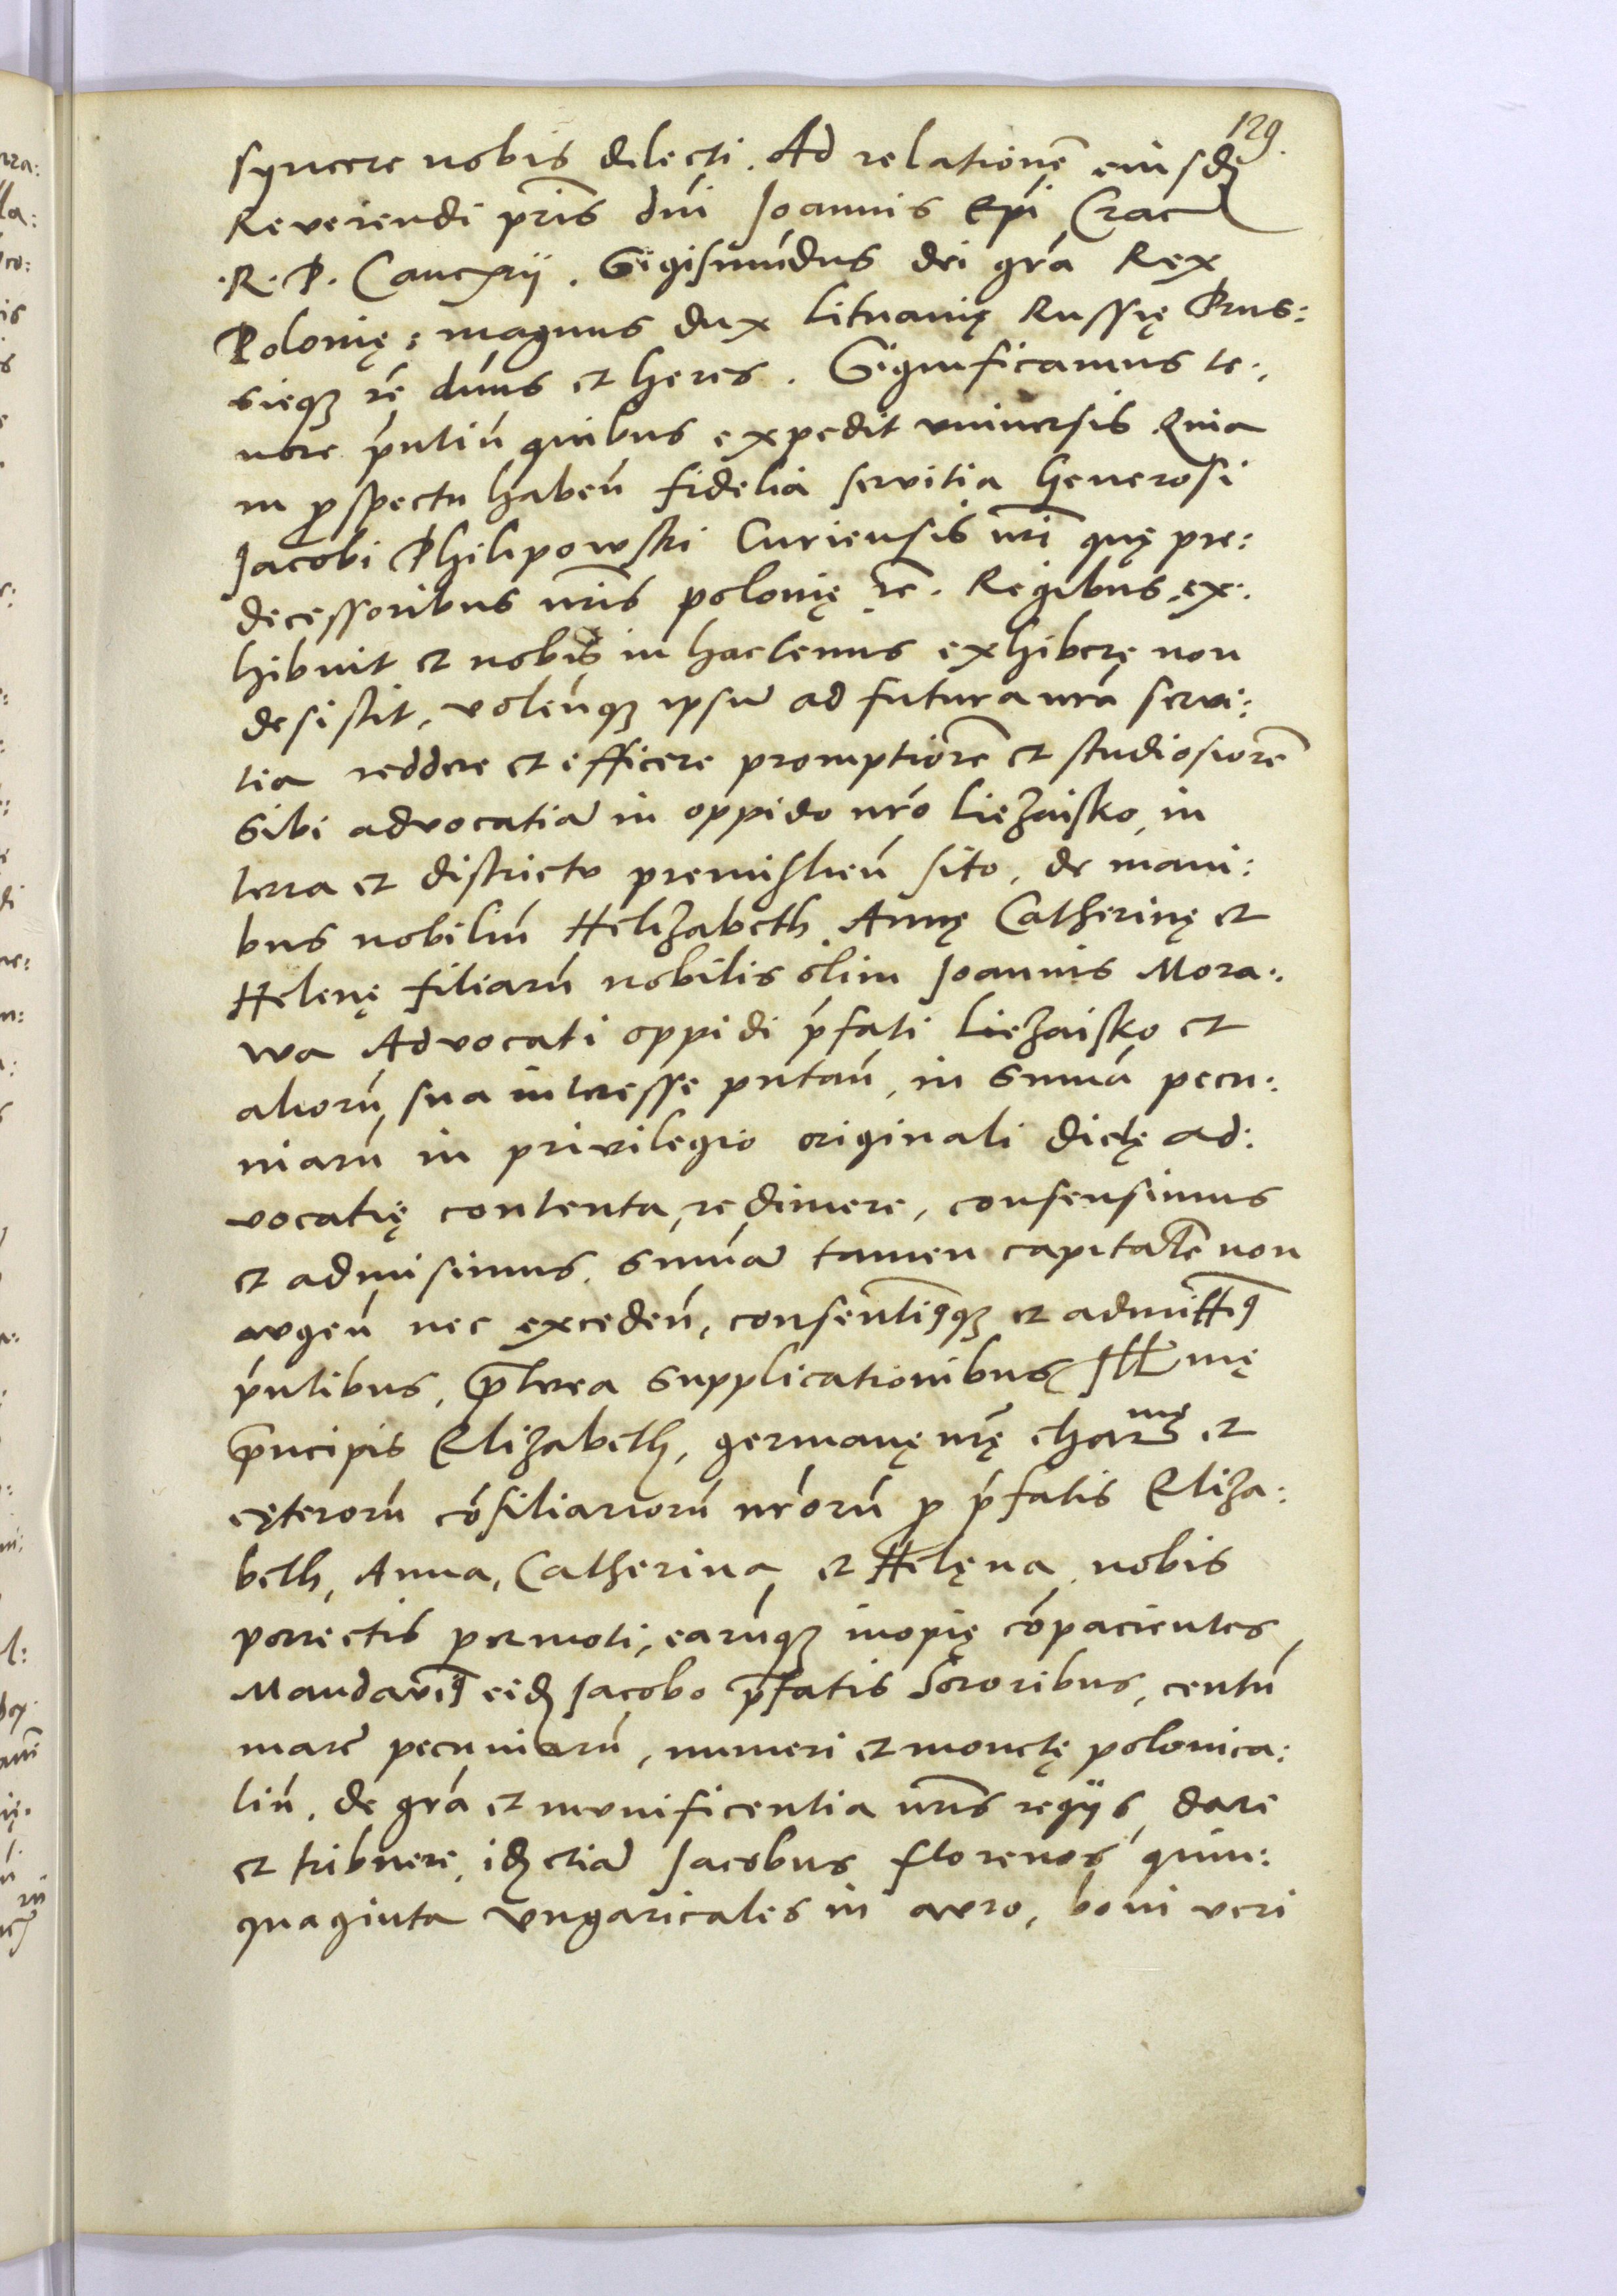 129.
syncere nobis dilecti. Ad relationē eiusdꝫ
Reverendi pris̄ dn̄i Joannis Ep̄i Crac̄
.R. P. Canc̄rij. Sigismūdus dei gr̄a Rex
Polonię: magnus dux Lituanię Russię Prus:
sieqꝫ rē dn̄us et heres. Significamus te:
nore p̄ntiū quibus expedit universis Quia
in ꝓspectu habeń fidelia servitia Generosi
Jacobi Philipowski Curiensis nr̄i quę pre:
decessoribus nr̄is polonię rē. Regibus ex:
hibuit et nobis in hactenus exhibere non
desistit, voleńqꝫ ipsū ad futura nr̄a servi:
tia reddere et efficere promptiorē et studiosiorē
sibi advocatiā in oppido nr̄o Lieʒaisko in
terra et districtu premislień sito, de mani:
bus nobiliū Heliʒabeth Annę Catherinę et
Helenę filiarū nobilis olim Joannis Mora:
wa Advocati oppidi p̄fati Lieʒaisko et
aliorū sua interesse putań, in sum̄a pecu:
niarū in privilegio originali dictę ad:
vocatię contenta redimere, consensimus
et admisimus. sum̄ā tamen capitalē non
augeń nec excedeń, consentimꝰqꝫ et admittimꝰ
p̄ntibus, p̄terea supplicationibus Ill̄mę
p̄ncipis Eliʒabeth, germanę nr̄ę char̄mę et
cęterorū cōsiliariorū nr̄orū ꝓ p̄fatis Eliʒa:
beth, Anna, Catherina et Helęna nobis
porrectis permoti, earūqꝫ inopię cōpacientes
Mandavimꝰ eidꝫ Jacobo p̄fatis Sororibus, centū
marc̄ pecuniarū, numeri et monetę polonica:
liū, de gr̄a et munificentia nr̄is regijs dare
et tribuere, idꝫ etiā Jacobus florenos quin:
quaginta Ungaricales in auro, boni veri